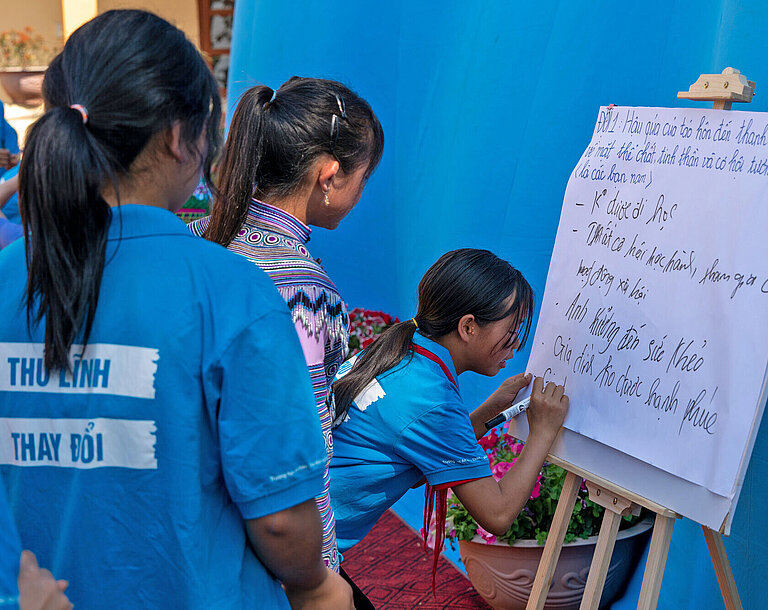 THỦ LĨNH
THAY ĐỔI
ĐỘI 1: Hậu qủa của tảo hôn đến thanh
về mặt thể chất, tinh thần và cơ hội tương
(là các bạn nam)
- K° được đi học
- Mất cơ hội học hành, tham gia c
hoạt động xã hội
- Ảnh hưởng đến sức khỏe
- Gia đình ko được hạnh phúc